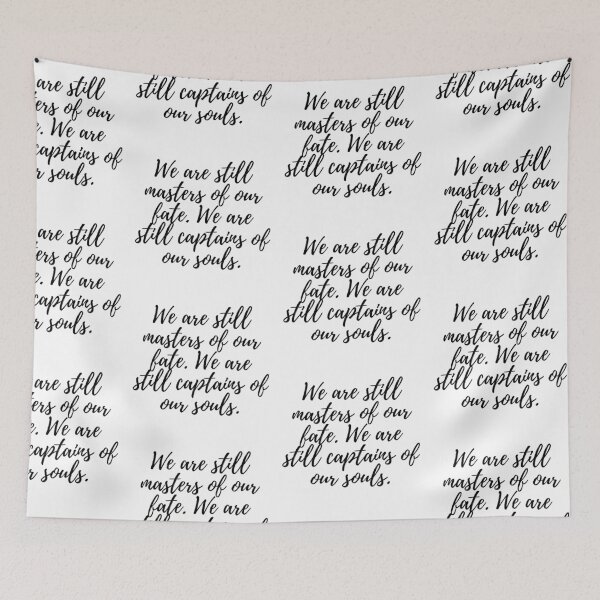 are still
ers of our
e. We are
captains of
r souls.
are still
ers of our
e. We are
captains of
r souls.
are still
ers of our
e. We are
captains of
r souls.
still captains of
our souls.
We are still
masters of our
fate. We are
still captains of
our souls.
We are still
masters of our
fate. We are
still captains of
our souls.
We are still
masters of our
fate. We are
We are still
masters of our
fate. We are
still captains of
our souls.
We are still
masters of our
fate. We are
still captains of
our souls.
We are still
masters of our
fate. We are
still captains of
our souls.
still captains of
our souls.
We are still
masters of our
fate. We are
still captains of
our souls.
We are still
masters of our
fate. We are
still captains of
our souls.
We are still
masters of our
fate. We are